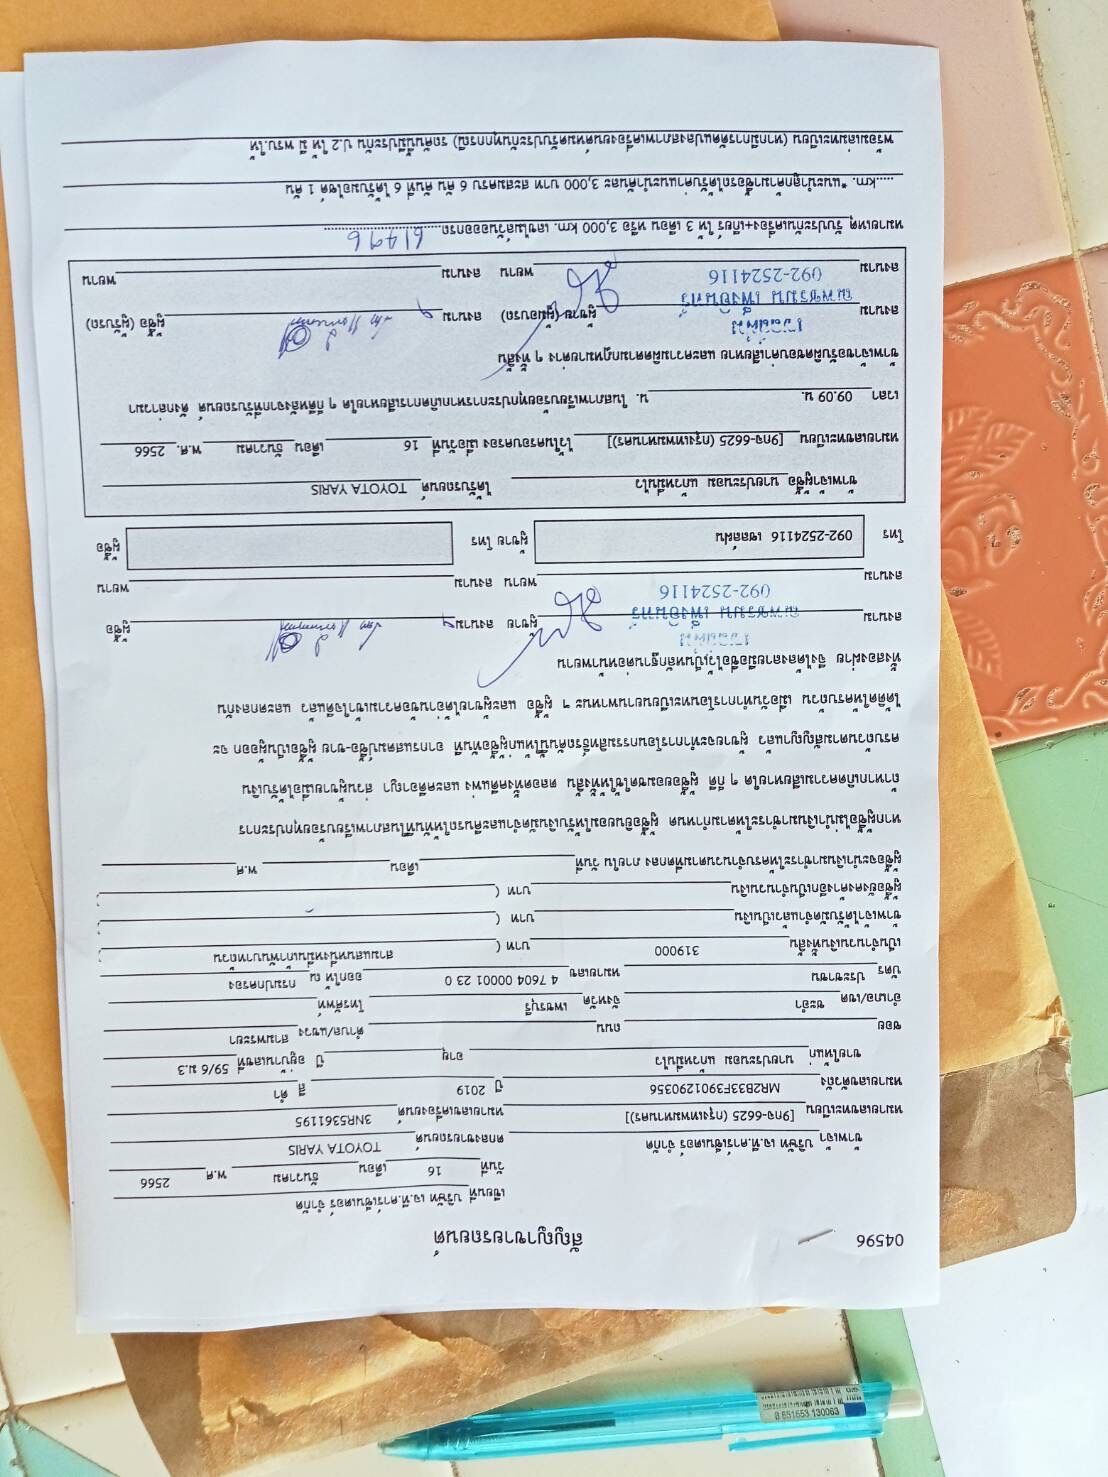 04596
สัญญาขายรถยนต์
เขียนที่ บริษัท เจ.ที.คาร์เซ็นเตอร์ จำกัด
วันที่ 16 เดือน ธันวาคม พ.ศ. 2566
ข้าพเจ้า บริษัท เจ.ที.คาร์เซ็นเตอร์ จำกัด ตกลงขายรถยนต์ TOYOTA YARIS
หมายเลขทะเบียน [9กจ-6625 (กรุงเทพมหานคร)] หมายเลขเครื่องยนต์ 3NR5361195
หมายเลขตัวถัง MR2B33F3901290356 ปี 2019 สี ดำ
ขายให้แก่ นายประนอม แก้วหมื่นไว อายุ ปี อยู่บ้านเลขที่ 59/6 ม.3
ซอย ถนน ตำบล/แขวง สามพระยา
อำเภอ/เขต ชะอำ จังหวัด เพชรบุรี โทรศัพท์
บัตร ประชาชน หมายเลข 4 7604 00001 23 0 ออกให้ ณ กรมปกครอง
เป็นจำนวนเงินทั้งสิ้น 319000 บาท ( สามแสนหนึ่งหมื่นเก้าพันบาทถ้วน
ข้าพเจ้าได้รับมัดจำแล้วเป็นเงิน บาท (
ผู้ซื้อยังคงค้างอีกเป็นจำนวนเงิน บาท (
ผู้ซื้อจะนำเงินมาชำระให้ครบจำนวนตามที่ตกลง ภายใน วันที่ เดือน พ.ศ
หากผู้ซื้อไม่นำเงินมาชำระให้ตามกำหนด ผู้ซื้อยินยอมให้ริบเงินมัดจำและคืนรถให้ทันทีในสภาพเรียบร้อยทุกประการ
ถ้าหากเกิดความเสียหายใด ๆ ก็ดี ผู้ซื้อยอมชดใช้ให้ทั้งสิ้น ตลอดทั้งคดีแพ่ง และคดีอาญา ส่วนผู้ขายเมื่อได้รับเงิน
ครบถ้วนตามสัญญาแล้ว ผู้ขายจะทำการโอนกรรมสิทธิ์รถคันนี้ให้แก่ผู้ซื้อทันที อากรแสตมป์ซื้อ-ขาย ผู้ซื้อเป็นผู้ออก จะ
ได้คิดให้ครบถ้วน เมื่อวันทำการโอนทะเบียนยานพาหนะ ฯ ผู้ซื้อ และผู้ขายได้อ่านข้อความเข้าใจดีแล้ว และ ตกลงกัน
ทั้งสองฝ่าย จึงได้ลงลายมือชื่อไว้เป็นหลักฐานต่อหน้าพยาน
เซลล์ฝน
ลงนาม ณพชรมน เพ็งอินทร์ ผู้ขาย ลงนาม ผู้ซื้อ
092-2524116
ลงนาม พยาน ลงนาม พยาน
โทร 092-2524116 เซลล์ฝน ผู้ขาย โทร ผู้ซื้อ
ข้าพเจ้าผู้ซื้อ นายประนอม แก้วหมื่นไว ได้รับรถยนต์ TOYOTA YARIS
หมายเลขทะเบียน [9กจ-6625 (กรุงเทพมหานคร)] ไว้ในครอบครอง เมื่อวันที่ 16 เดือน ธันวาคม พ.ศ. 2566
เวลา 09.09 น. น. ในสภาพเรียบร้อยทุกประการหากเกิดการเสียหายใด ๆ ก็ดีหลังจากที่รับรถยนต์ ดังกล่าวมา
ข้าพเจ้าขอรับผิดชอบค่าเสียหาย และความผิดตามกฎหมายต่าง ๆ ทั้งสิ้น
เซลล์ฝน
ลงนาม ณพชรมน เพ็งอินทร์ ผู้ขาย (ผู้มอบรถ) ลงนาม ผู้ซื้อ (ผู้รับรถ)
092-2524116
ลงนาม พยาน ลงนาม พยาน
หมายเหตุ รับประกันเครื่อง+เกียร์ ให้ 3 เดือน หรือ 3,000 km. เลขไมล์วันออกรถ 61496
.....km. *แนะนำลูกค้ามาซื้อรถได้รับค่าแนะนำคันละ 3,000 บาท สะสมครบ 6 คัน คันที่ 6 ได้รับมอไซค์ 1 คัน
พร้อมเล่มทะเบียน (หากมีการดัดแปลงสภาพเครื่องยนต์หมดรับประกันทุกกรณี) รถคันนี้มีประกัน ป.2 ให้ มี พรบ.ให้
8 851553 130063